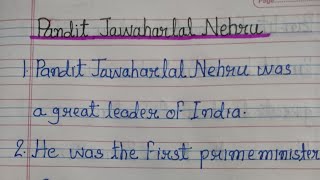 Pandit Jawaharlal Nehru
1. Pandit Jawaharlal Nehru was
a great leader of India.
2. He was the first primeminister